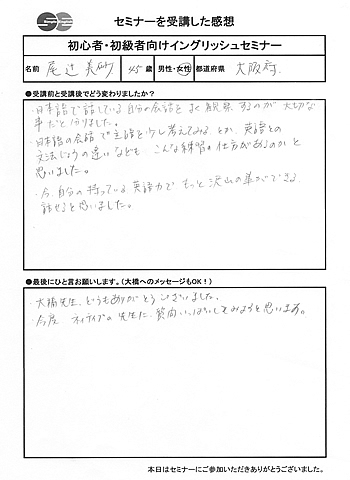 セミナーを受講した感想
初心者・初級者向けイングリッシュセミナー
名前 尾辻 美砂 45 歳 男性・女性 都道府県 大阪府
●受講前と受講後でどう変わりましたか？
・日本語で話している自分の会話をよく観察するのが大切な
事だと分りました。
・日本語の会話で主語を少し考えてみる とか、英語との
文法じょうの違いなども こんな練習の仕方があるのかと
思いました。
・今、自分の持っている英語力で もっと沢山の事ができる、
話せると思いました。
●最後にひと言お願いします。（大橋へのメッセージもOK！）
・大橋先生、どうもありがとうございました。
・今度 ネイティブの先生に、質問いっぱいしてみようと思います。
本日はセミナーにご参加いただきありがとうございました。